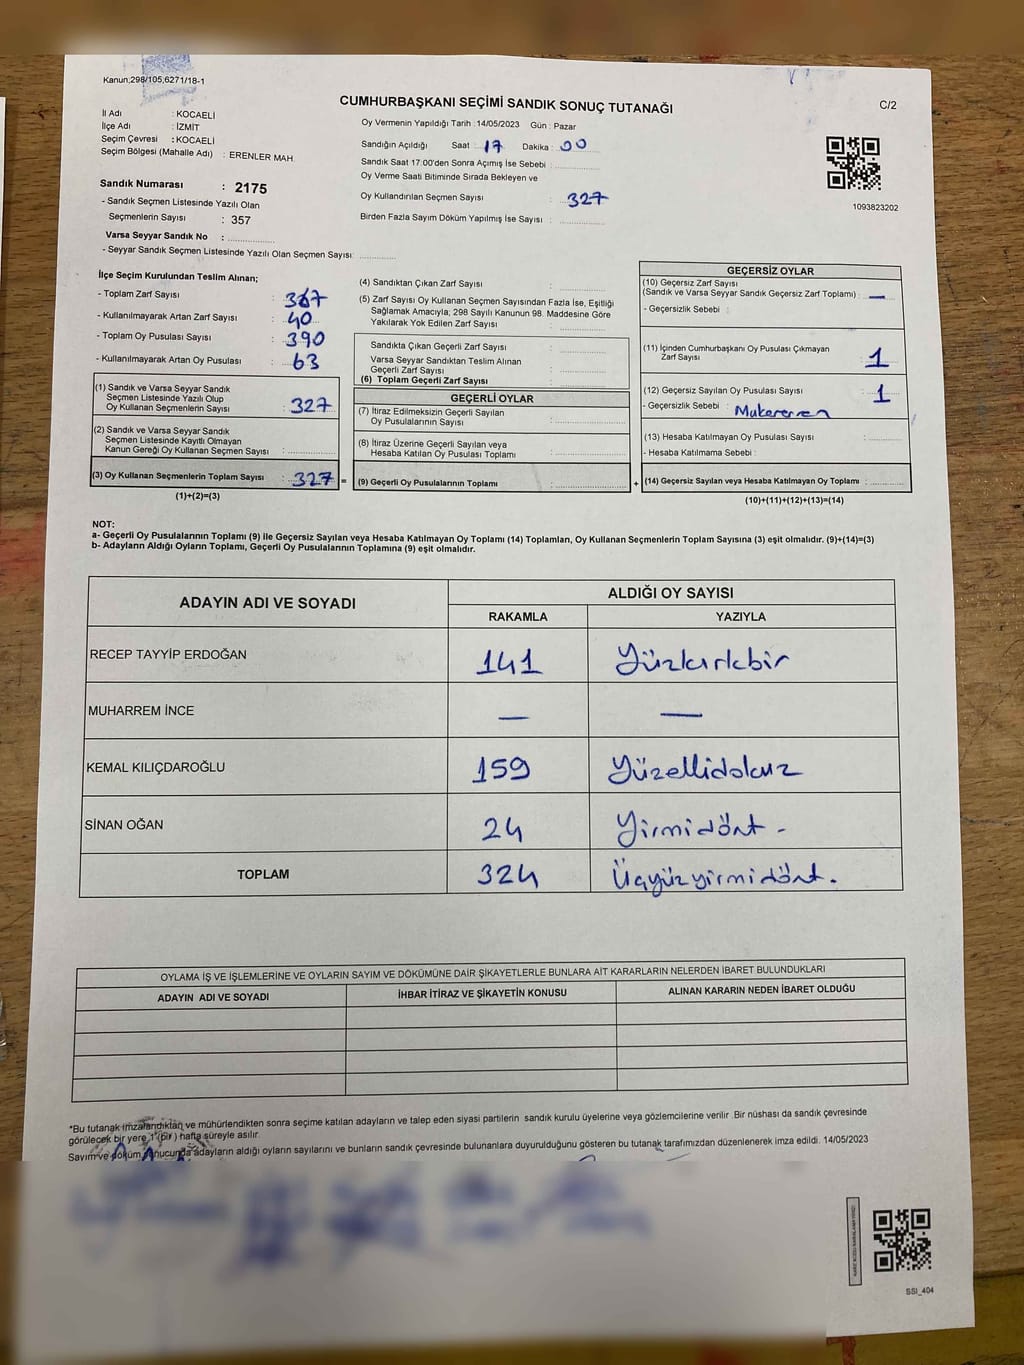 Kanun;298/105,6271/18-1
CUMHURBAŞKANI SEÇİMİ SANDIK SONUÇ TUTANAĞI
C/2
İl Adı : KOCAELİ
İlçe Adı : İZMİT
Seçim Çevresi : KOCAELİ
Seçim Bölgesi (Mahalle Adı) : ERENLER MAH.
Sandık Numarası : 2175
- Sandık Seçmen Listesinde Yazılı Olan
Seçmenlerin Sayısı : 357
Varsa Seyyar Sandık No :
- Seyyar Sandık Seçmen Listesinde Yazılı Olan Seçmen Sayısı:
Oy Vermenin Yapıldığı Tarih :14/05/2023 Gün : Pazar
Sandığın Açıldığı Saat : 17 Dakika : 00
Sandık Saat 17:00'den Sonra Açımış İse Sebebi :
Oy Verme Saati Bitiminde Sırada Bekleyen ve
Oy Kullandırılan Seçmen Sayısı : 327
Birden Fazla Sayım Döküm Yapılmış İse Sayısı :
1093823202
İlçe Seçim Kurulundan Teslim Alınan;
- Toplam Zarf Sayısı :
- Kullanılmayarak Artan Zarf Sayısı : 40
- Toplam Oy Pusulası Sayısı : 390
- Kullanılmayarak Artan Oy Pusulası : 63
(1) Sandık ve Varsa Seyyar Sandık
Seçmen Listesinde Yazılı Olup
Oy Kullanan Seçmenlerin Sayısı : 327
(2) Sandık ve Varsa Seyyar Sandık
Seçmen Listesinde Kayıtlı Olmayan
Kanun Gereği Oy Kullanan Seçmen Sayısı :
(3) Oy Kullanan Seçmenlerin Toplam Sayısı : 327 =
(1)+(2)=(3)
(4) Sandıktan Çıkan Zarf Sayısı :
(5) Zarf Sayısı Oy Kullanan Seçmen Sayısından Fazla İse, Eşitliği
Sağlamak Amacıyla; 298 Sayılı Kanunun 98. Maddesine Göre
Yakılarak Yok Edilen Zarf Sayısı :
Sandıkta Çıkan Geçerli Zarf Sayısı :
Varsa Seyyar Sandıktan Teslim Alınan
Geçerli Zarf Sayısı :
(6) Toplam Geçerli Zarf Sayısı :
GEÇERLİ OYLAR
(7) İtiraz Edilmeksizin Geçerli Sayılan
Oy Pusulalarının Sayısı :
(8) İtiraz Üzerine Geçerli Sayılan veya
Hesaba Katılan Oy Pusulası Toplamı :
(9) Geçerli Oy Pusulalarının Toplamı : +
GEÇERSİZ OYLAR
(10) Geçersiz Zarf Sayısı
(Sandık ve Varsa Seyyar Sandık Geçersiz Zarf Toplamı) : —
- Geçersizlik Sebebi :
(11) İçinden Cumhurbaşkanı Oy Pusulası Çıkmayan
Zarf Sayısı : 1
(12) Geçersiz Sayılan Oy Pusulası Sayısı : 1
- Geçersizlik Sebebi :
(13) Hesaba Katılmayan Oy Pusulası Sayısı :
- Hesaba Katılmama Sebebi :
(14) Geçersiz Sayılan veya Hesaba Katılmayan Oy Toplamı :
(10)+(11)+(12)+(13)=(14)
NOT:
a- Geçerli Oy Pusulalarının Toplamı (9) ile Geçersiz Sayılan veya Hesaba Katılmayan Oy Toplamı (14) Toplamları, Oy Kullanan Seçmenlerin Toplam Sayısına (3) eşit olmalıdır. (9)+(14)=(3)
b- Adayların Aldığı Oyların Toplamı, Geçerli Oy Pusulalarının Toplamına (9) eşit olmalıdır.
ADAYIN ADI VE SOYADI
ALDIĞI OY SAYISI
RAKAMLA YAZIYLA
RECEP TAYYİP ERDOĞAN 141 Yüzkırkbir
MUHARREM İNCE — —
KEMAL KILIÇDAROĞLU 159 Yüzellidokuz
SİNAN OĞAN 24 Yirmidört -
TOPLAM 324 Üçyüzyirmidört.
OYLAMA İŞ VE İŞLEMLERİNE VE OYLARIN SAYIM VE DÖKÜMÜNE DAİR ŞİKAYETLERLE BUNLARA AİT KARARLARIN NELERDEN İBARET BULUNDUKLARI
ADAYIN ADI VE SOYADI İHBAR İTİRAZ VE ŞİKAYETİN KONUSU ALINAN KARARIN NEDEN İBARET OLDUĞU
*Bu tutanak imzalandıktan ve mühürlendikten sonra seçime katılan adayların ve talep eden siyasi partilerin sandık kurulu üyelerine veya gözlemcilerine verilir .Bir nüshası da sandık çevresinde
görülecek bir yere 1 (bir ) hafta süreyle asılır.
Sayım ve döküm sonucunda adayların aldığı oyların sayılarını ve bunların sandık çevresinde bulunanlara duyurulduğunu gösteren bu tutanak tarafımızdan düzenlenerek imza edildi. 14/05/2023
SSI_404